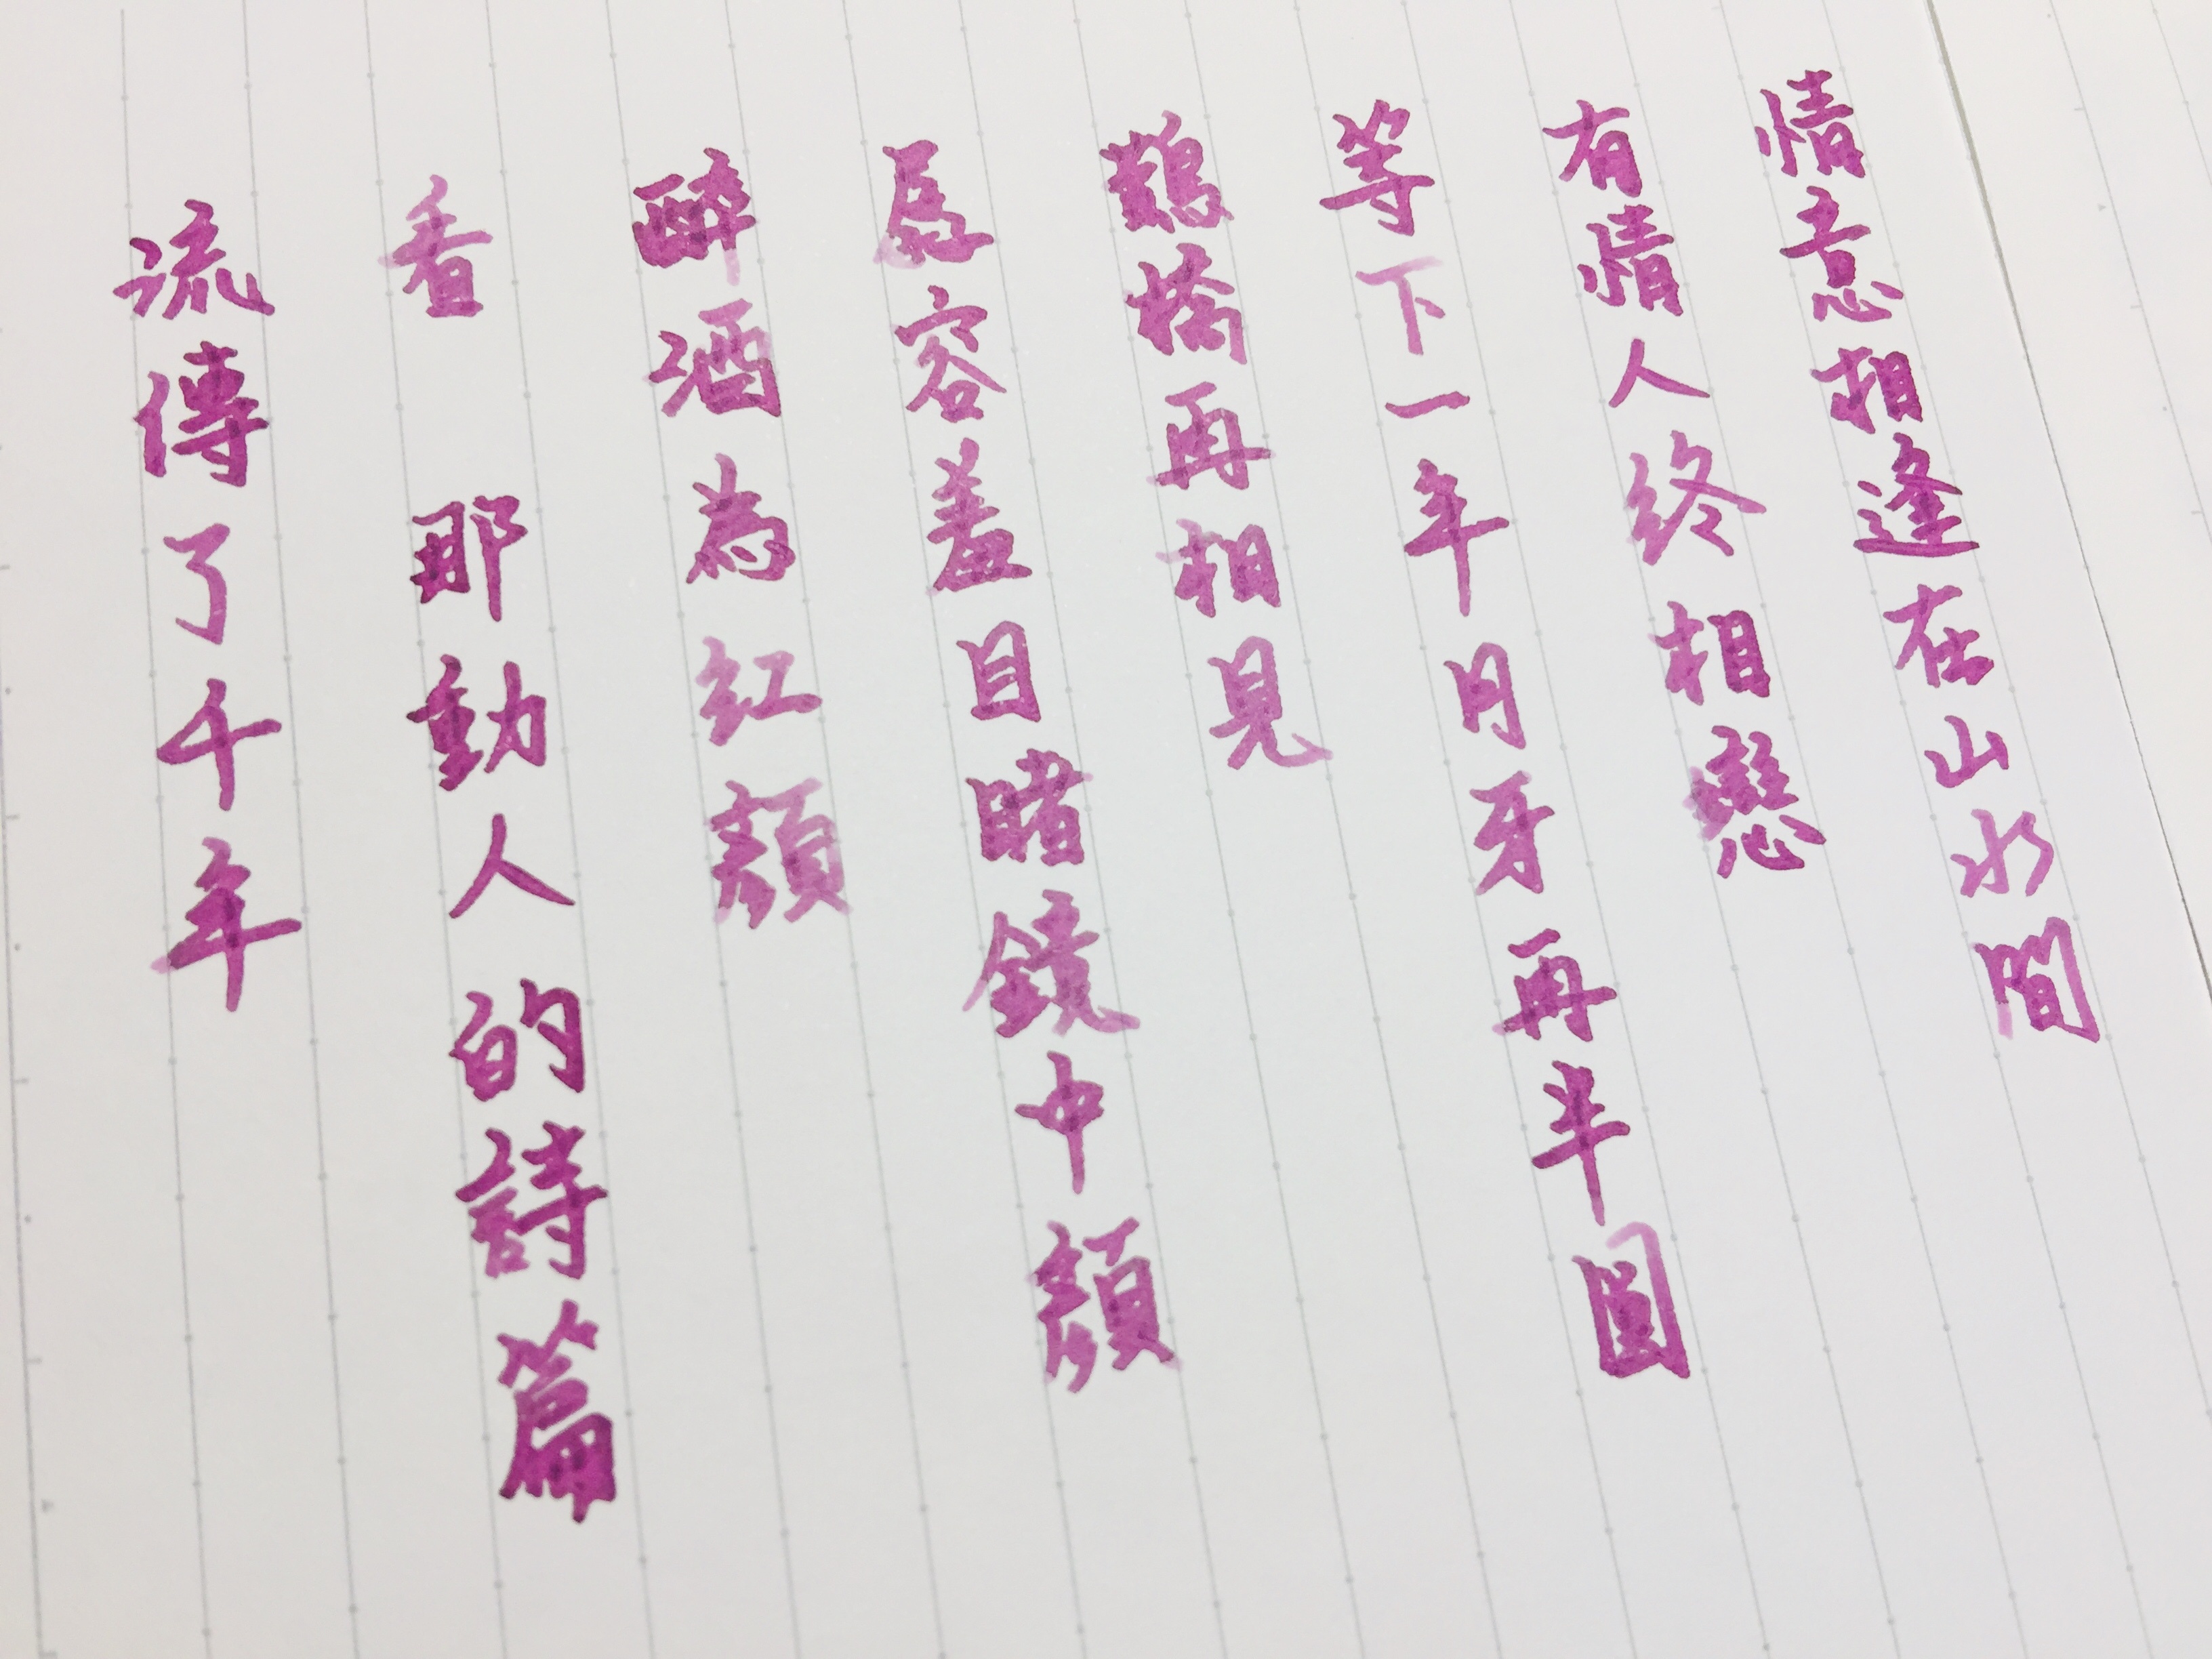 情意相逢在山水間
有情人終相戀
等下一年月牙再半圓
鵲橋再相見
容羞目睹鏡中顏
醉酒為紅顏
看 那動人的詩篇
流傳了千年